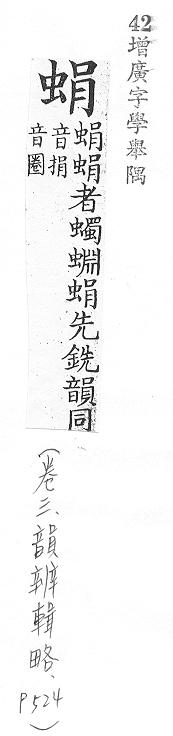 42增廣字學舉隅
蜎
蜎蜎者蠋蜵蜎先銑韻同
音捐
音圈
(卷三、韻辨輯略、P524)